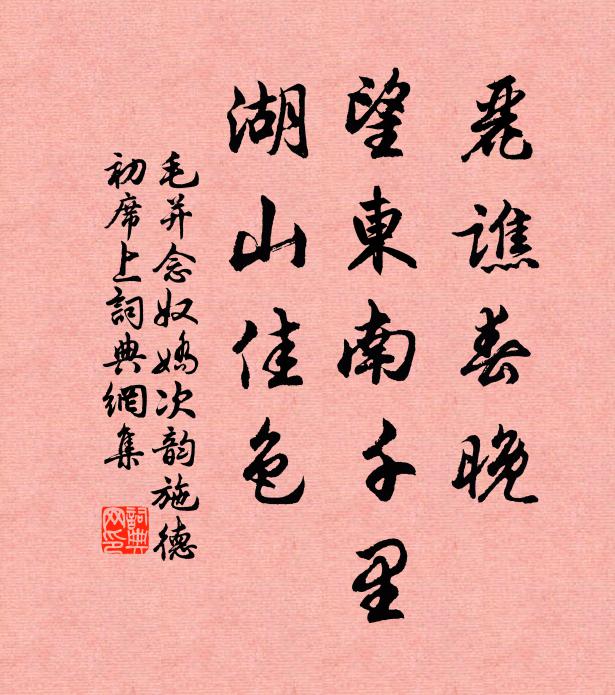 麗譙春晚
望東南千里
湖山佳色
毛并念奴嬌次韵施德
初席上詞典網集
詞典
网印